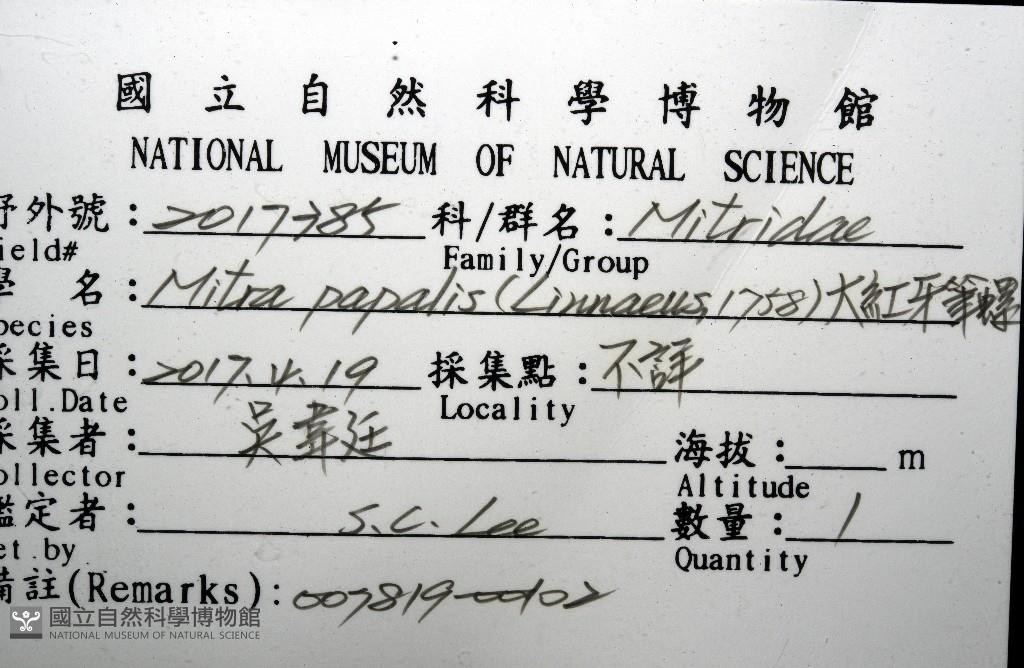 國立自然科學博物館
NATIONAL MUSEUM OF NATURAL SCIENCE
野外號：2017-385 科/群名：Mitridae
ield# Family/Group
學名：Mitra papalis (Linnaeus, 1758) 大紅牙筆螺
pecies
採集日：2017.4.19 採集點：不詳
oll.Date Locality
採集者：吳韋廷 海拔：m
ollector Altitude
鑑定者：S.C. Lee 數量：1
et.by Quantity
備註(Remarks)：007819-00102
國立自然科學博物館
NATIONAL MUSEUM OF NATURAL SCIENCE